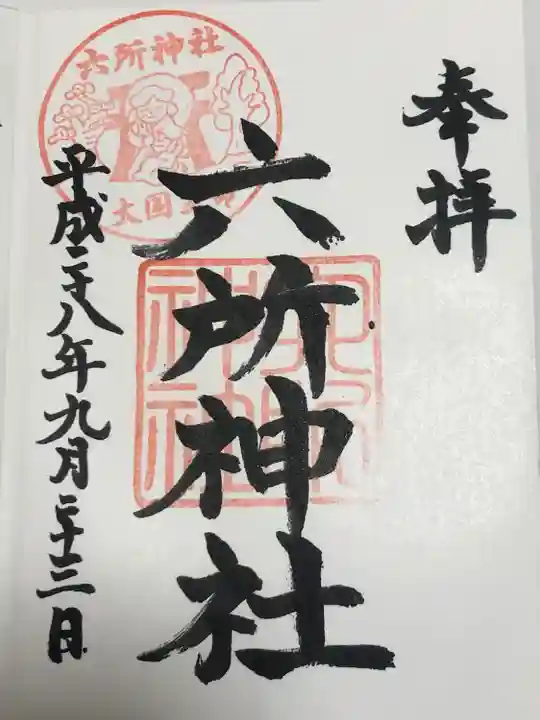 奉拝
六所神社
六所神社
平成二十八年九月二十三日